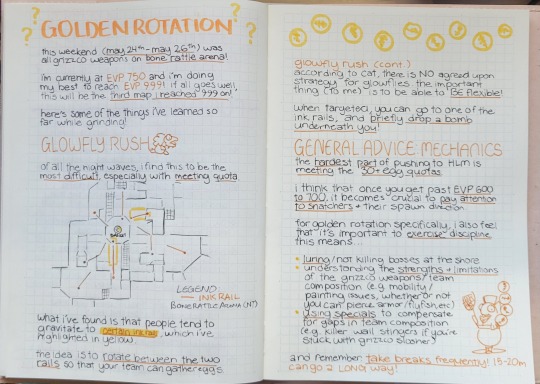 GOLDEN ROTATION
this weekend (may 24th - may 26th) was
all grizzco weapons on bone rattle arena!
i'm currently at EVP 750 and i'm doing
my best to reach EVP 999! if all goes well,
this will be the third map i reached 999 on!
here's some of the things i've learned so
far while grinding!
GLOWFLY RUSH
of all the night waves, i find this to be the
most difficult, especially with meeting quota.
LEGEND:
— INK RAIL
BONE RATTLE ARENA (NT)
what i've found is that people tend to
gravitate to certain ink rails, which i've
highlighted in yellow.
the idea is to rotate between the two
rails so that your team can gather eggs.
glowfly rush (cont.)
according to cat, there is NO agreed upon
strategy for glowflies. the important
thing (to me) is to be able to BE flexible!
when targeted, you can go to one of the
ink rails, and briefly drop a bomb
underneath you!
GENERAL ADVICE MECHANICS
the hardest part of pushing to HLM is
meeting the 30+ egg quotas.
i think that once you get past EVP 600
to 700, it becomes crucial to pay attention
to snatchers + their spawn direction
for golden rotation specifically, i also feel
that it's important to exercise discipline
this means...
• luring/not killing bosses at the shore
• understanding the strengths + limitations
of the grizzco weapons/team
composition (e.g. mobility/
painting issues, whether or not
you can pierce armor flyfish, etc)
• using specials to compensate
for gaps in team composition
(e.g. killer wail stingers if you're
stuck with grizzco slosher)
and remember take breaks frequently! 15-20m
can go a LONG way!